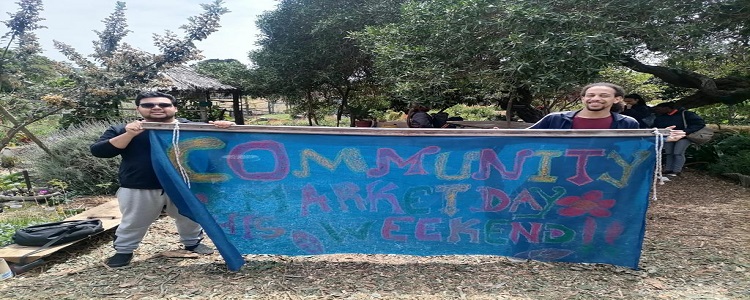 COMMUNITY
MARKET DAY
THIS WEEKEND!!